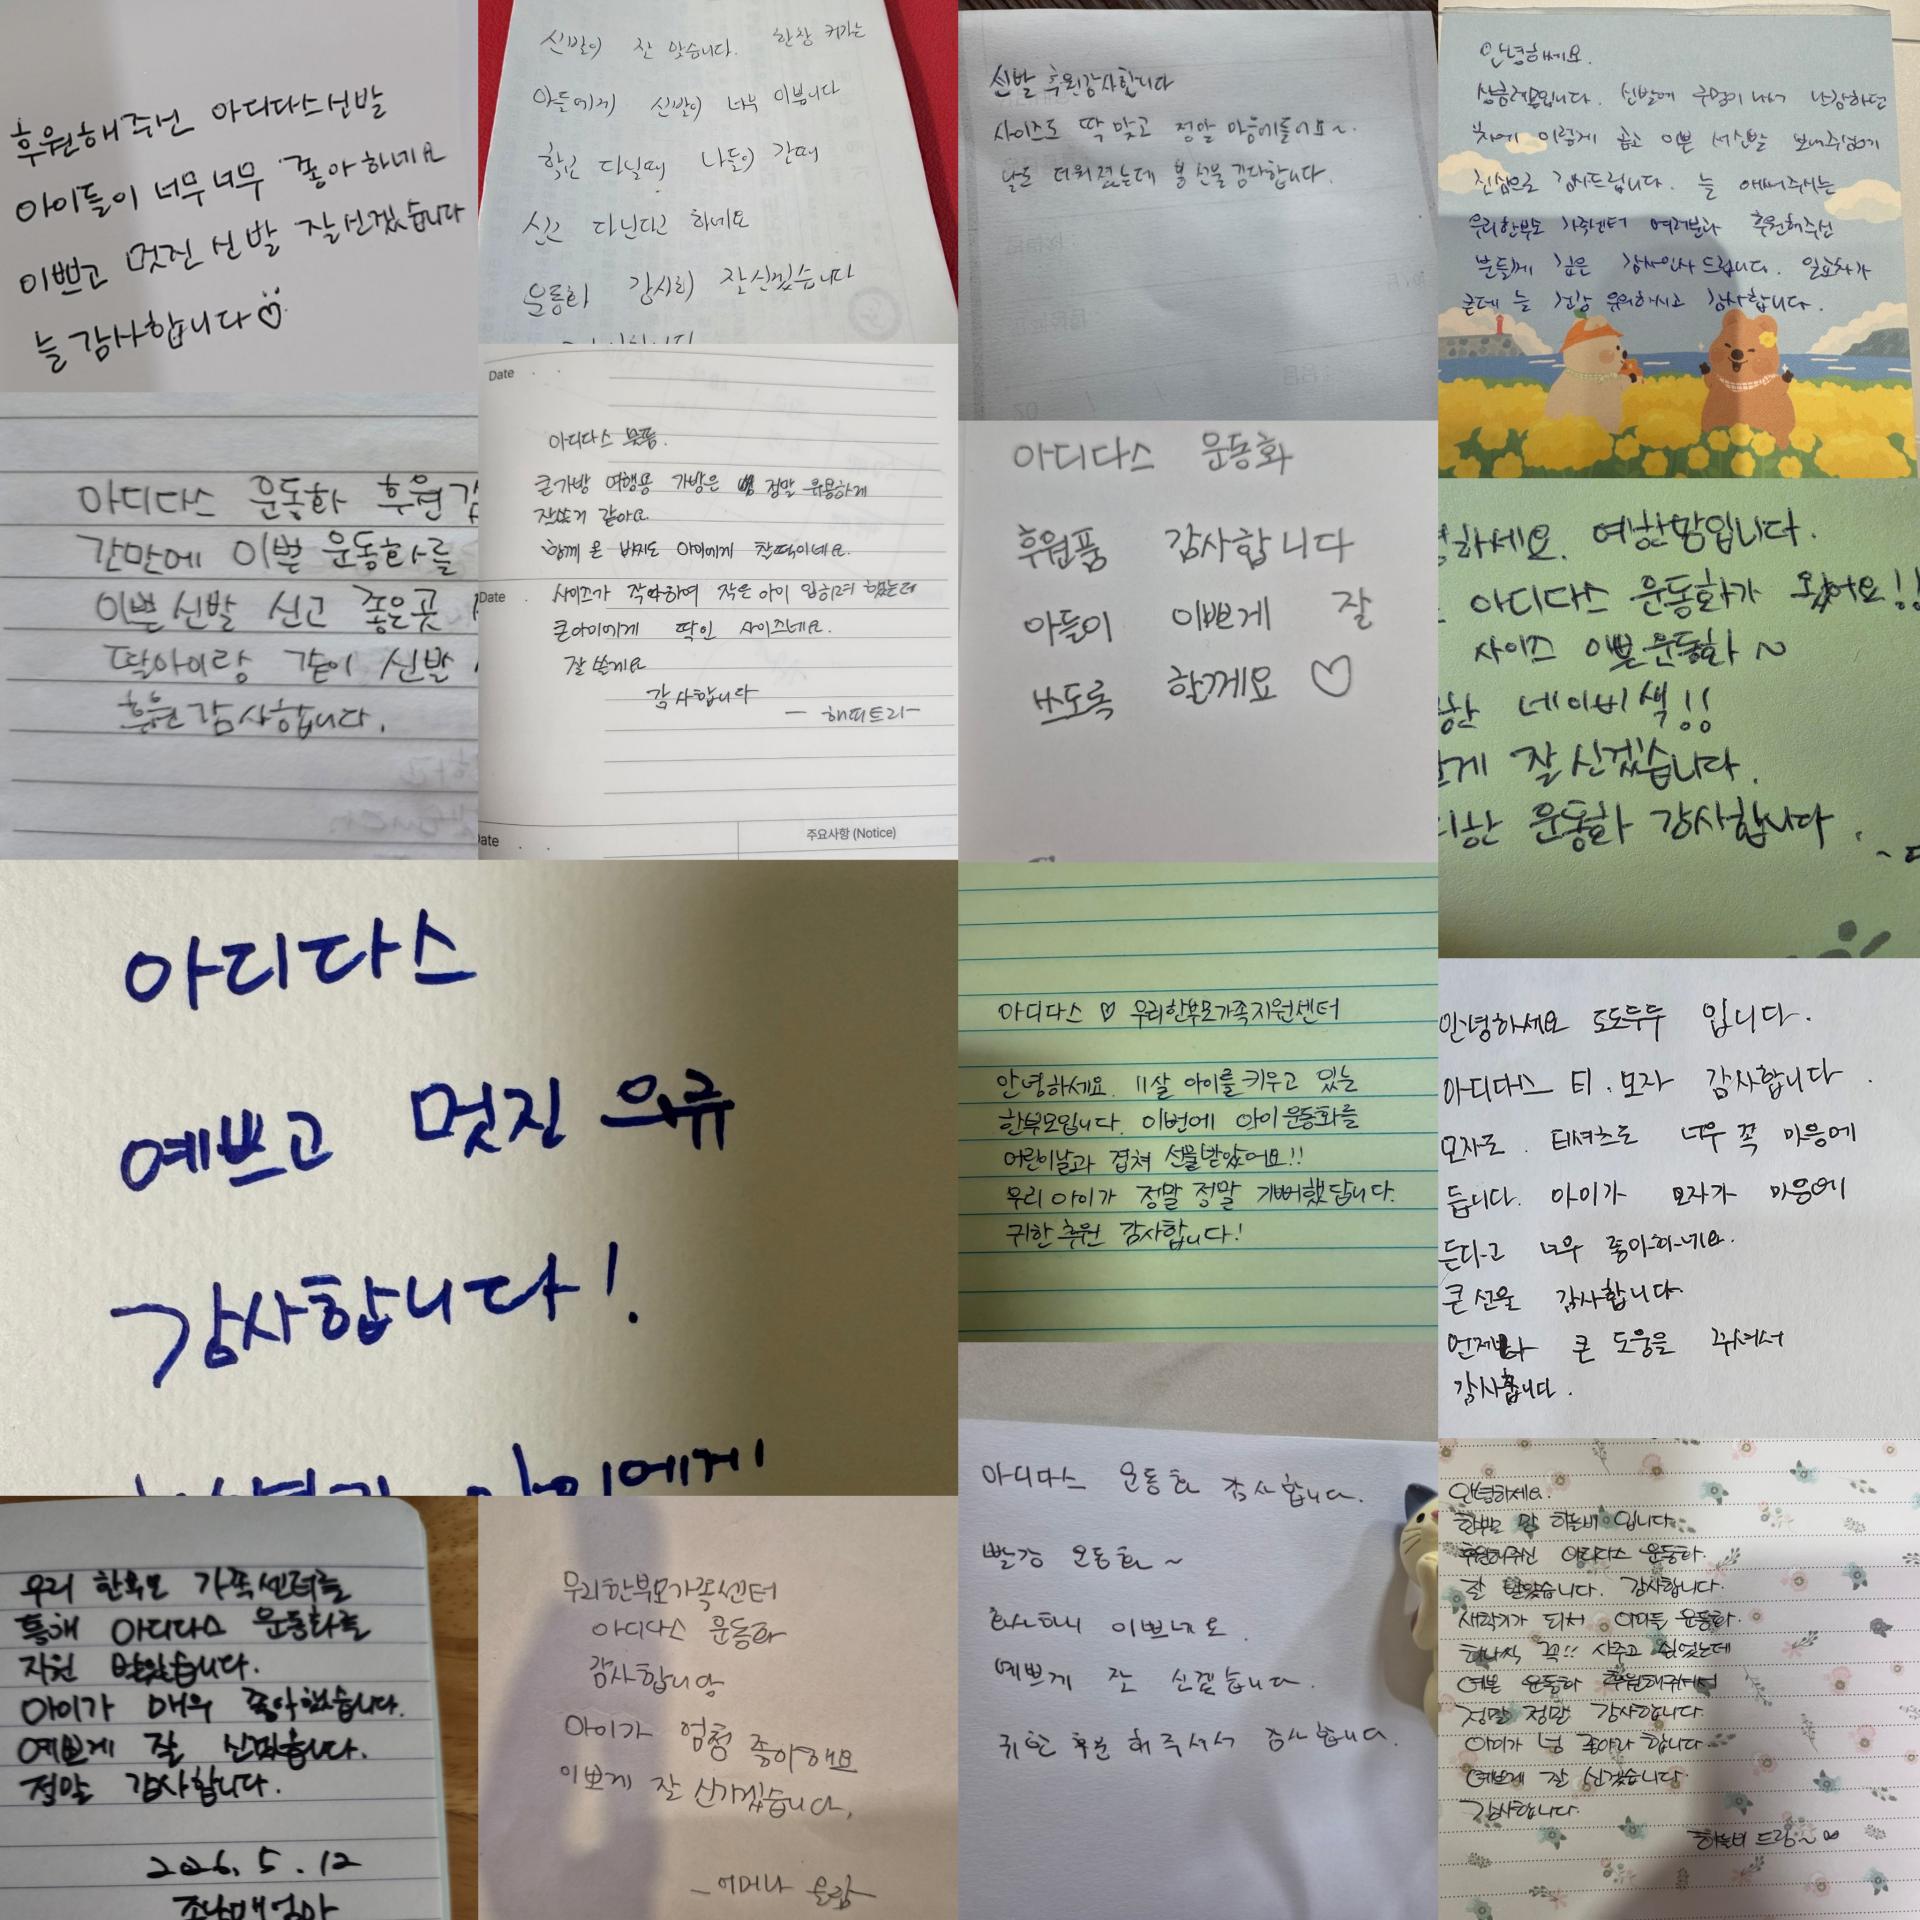 후원해주신 아디다스신발
아이들이 너무너무 좋아하네요
이쁘고 멋진 신발 잘신겠습니다
늘 감사합니다♡
신발이 잘 맞습니다. 한창 커가는
아들에게 신발이 너무 이쁩니다
학교 다닐때 나들이 갈때
신고 다닌다고 하네요
운동화 감사히 잘신겠습니다
신발 후원감사합니다
사이즈도 딱 맞고 정말 마음에들어요~.
날도 더워졌는데 봄 선물 감사합니다.
안녕하세요.
신발에 구멍이 나서 난감하던
차에 이렇게 곱고 이쁜 새신발 보내주심에
진심으로 감사드립니다. 늘 애써주시는
우리한부모 가족센터 여러분과 후원해주신
분들께 깊은 감사인사 드립니다. 일교차가
큰데 늘 건강 유의하시고 감사합니다.
아디다스 운동화 후원 감
간만에 이쁜 운동화를
이쁜 신발 신고 좋은곳
딸아이랑 같이 신발
후원 감사합니다.
Date
아디다스 물품.
큰가방 여행용 가방은 정말 유용하게
잘쓰게 같아요
함께 온 바지도 아이에게 찰떡이네요.
Date
사이즈가 작아하여 작은 아이 입히려 했는데
큰아이에게 딱인 사이즈네요.
잘 쓸게요
감사합니다
— 해피트리—
Date
주요사항 (Notice)
아디다스 운동화
후원품 감사합니다
아들이 이쁘게 잘
쓰도록 할께요 ♡
하세요. 여한맘입니다.
아디다스 운동화가 왔어요!!
사이즈 이쁜운동화~
한 네이비색!!
게 잘 신겠습니다.
한 운동화 감사합니다.
아디다스
예쁘고 멋진 의류
감사합니다!
아이에게
아디다스 ♡ 우리한부모가족지원센터
안녕하세요. 11살 아이를 키우고 있는
한부모입니다. 이번에 아이 운동화를
어린이날과 겹쳐 선물받았어요!!
우리 아이가 정말 정말 기뻐했답니다.
귀한 후원 감사합니다!
안녕하세요 도도두두 입니다.
아디다스 티. 모자 감사합니다.
모자도. 티셔츠도 너무 꼭 마음에
듭니다. 아이가 모자가 마음에
든다고 너무 좋아하네요.
큰 선물 감사합니다.
언제나 큰 도움을 주셔서
감사합니다.
우리 한부모 가족센터를
통해 아디다스 운동화를
지원 받았습니다.
아이가 매우 좋아했습니다.
예쁘게 잘 신겠습니다.
정말 감사합니다.
2026. 5. 12
조남매엄마
우리한부모가족센터
아디다스 운동화
감사합니당
아이가 엄청 좋아해요
이쁘게 잘 신기겠습니다.
아디다스 운동화 감사합니다.
빨강 운동화~
화사하니 이쁘네요.
예쁘게 잘 신겠습니다.
귀한 후원 해주셔서 감사합니다.
안녕하세요.
한부모 맘 하늘비 입니다.
후원해주신 아디다스 운동화.
잘 받았습니다. 감사합니다.
새학기가 되서 아이들 운동화.
하나씩 꼭!! 사주고 싶었는데
예쁜 운동화 후원해주셔서
정말 정말 감사합니다.
아이가 넘 좋아라 합니다.
예쁘게 잘 신겠습니다.
감사합니다.
하늘비 드림~♡